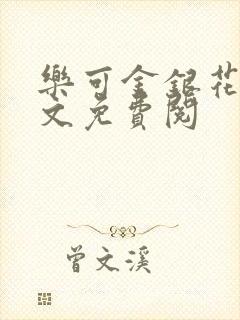 樂可金銀花
文免費閱
曾文溪